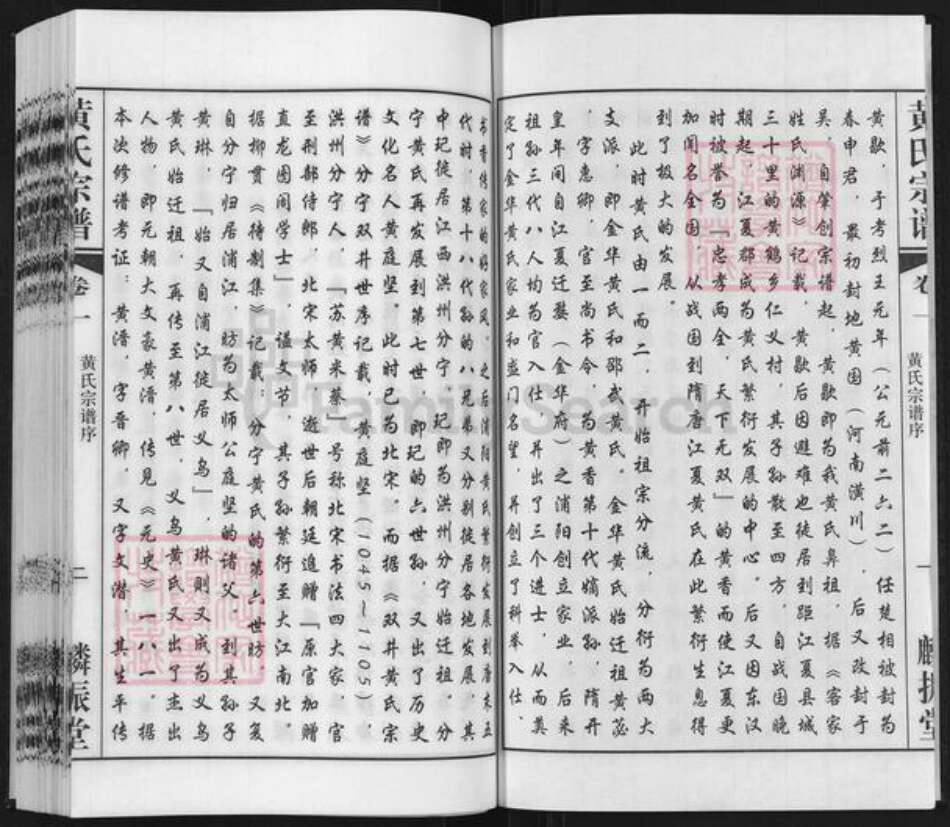 黄氏宗谱
卷一
黄氏宗谱序
一
麟振堂
黄歇，于考烈王元年（公元前二六二）任楚相被封为
春申君，最初封地黄国（河南潢川），后又改封于
吴，自肇创宗谱起，黄歇即为我黄氏鼻祖，据《客家
姓氏渊源》记载，黄歇后因避难也徒居到距江夏县城
三十里的黄鹤乡仁义村，其子孙散至四方，自战国晚
期起，江夏郡成为黄氏繁衍发展的中心。后又因东汉
时被誉为『忠孝两全，天下无双』的黄香而使江夏更
加闻名全国，从战国到隋唐江夏黄氏在此繁衍生息得
到了极大的发展。
此时黄氏由一而二，开始祖宗分流，分衍为两大
支派，即金华黄氏和邵武黄氏。金华黄氏始迁祖黄苾
，字惠卿，官至尚书令，为黄香第十代嫡派孙，隋开
皇年间自江夏迁婺（金华府）之浦阳创立家业，后来
祖孙三代八人均为官入仕，并出了三个进士，从而奠
定了金华黄氏家业和盛门名望，并创立了科举入仕、
书香传家的好家风，之后浦阳黄氏繁衍发展到唐末五
代时，第十八代孙的八兄弟又分别徒居各地发展，其
中玘徙居江西洪州分宁，玘即为洪州分宁始迁祖，分
宁黄氏再发展到第七世，即玘的六世孙，又出了历史
文化名人黄庭坚。此时已为北宋。而据《双井黄氏宗
谱》分宁双井世序记载，黄庭坚（1045—1105），
洪州分宁人，『苏黄米蔡』号称北宋书法四大家，官
至刑部侍郎，北宋太师，逝世后朝廷追赠『原官加赠
直龙图阁学士』，谥文节，其子孙繁衍至大江南北。
据柳贯《待制集》记载：分宁黄氏的第六世昉，又复
自分宁归居浦江，昉为太师公庭坚的诸父，到其孙子
黄琳，『始又自浦江徙居义乌』，琳则又成为义乌
黄氏始迁祖，再传至第八世，义乌黄氏又出了杰出
人物，即元朝大文豪黄溍，传见《元史》一八一，据
本次修谱考证：黄溍，字晋卿，又字文潜，其生平传
黄氏宗谱
卷一
黄氏宗谱序
二
麟振堂
FamilySearch